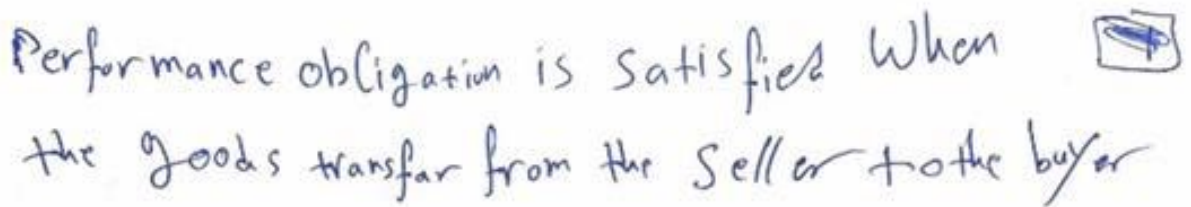 Performance obligation is satisfied When
the goods transfar from the seller to the buyer